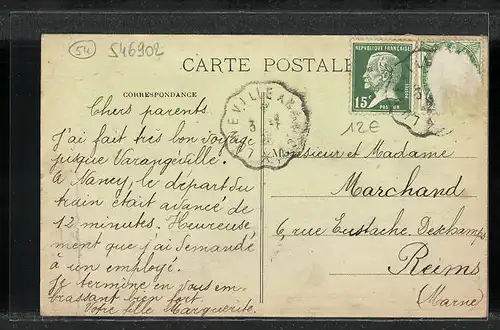 54 546902
CARTE POSTALE
REPUBLIQUE FRANÇAISE
POSTES
15
PASTEUR
12E
CORRESPONDANCE
Chers parents.
J'ai fait très bon voyage
jusque Varangéville.
A Nancy, le départ du
train était avancé de
12 minutes. Heureuse
ment que j'ai demandé
à un employé.
Je termine en vous em
brassant bien fort.
Votre fille Marguerite.
Monsieur et Madame
Marchand
6, rue Eustache. Deschamps
Reims
(Marne)